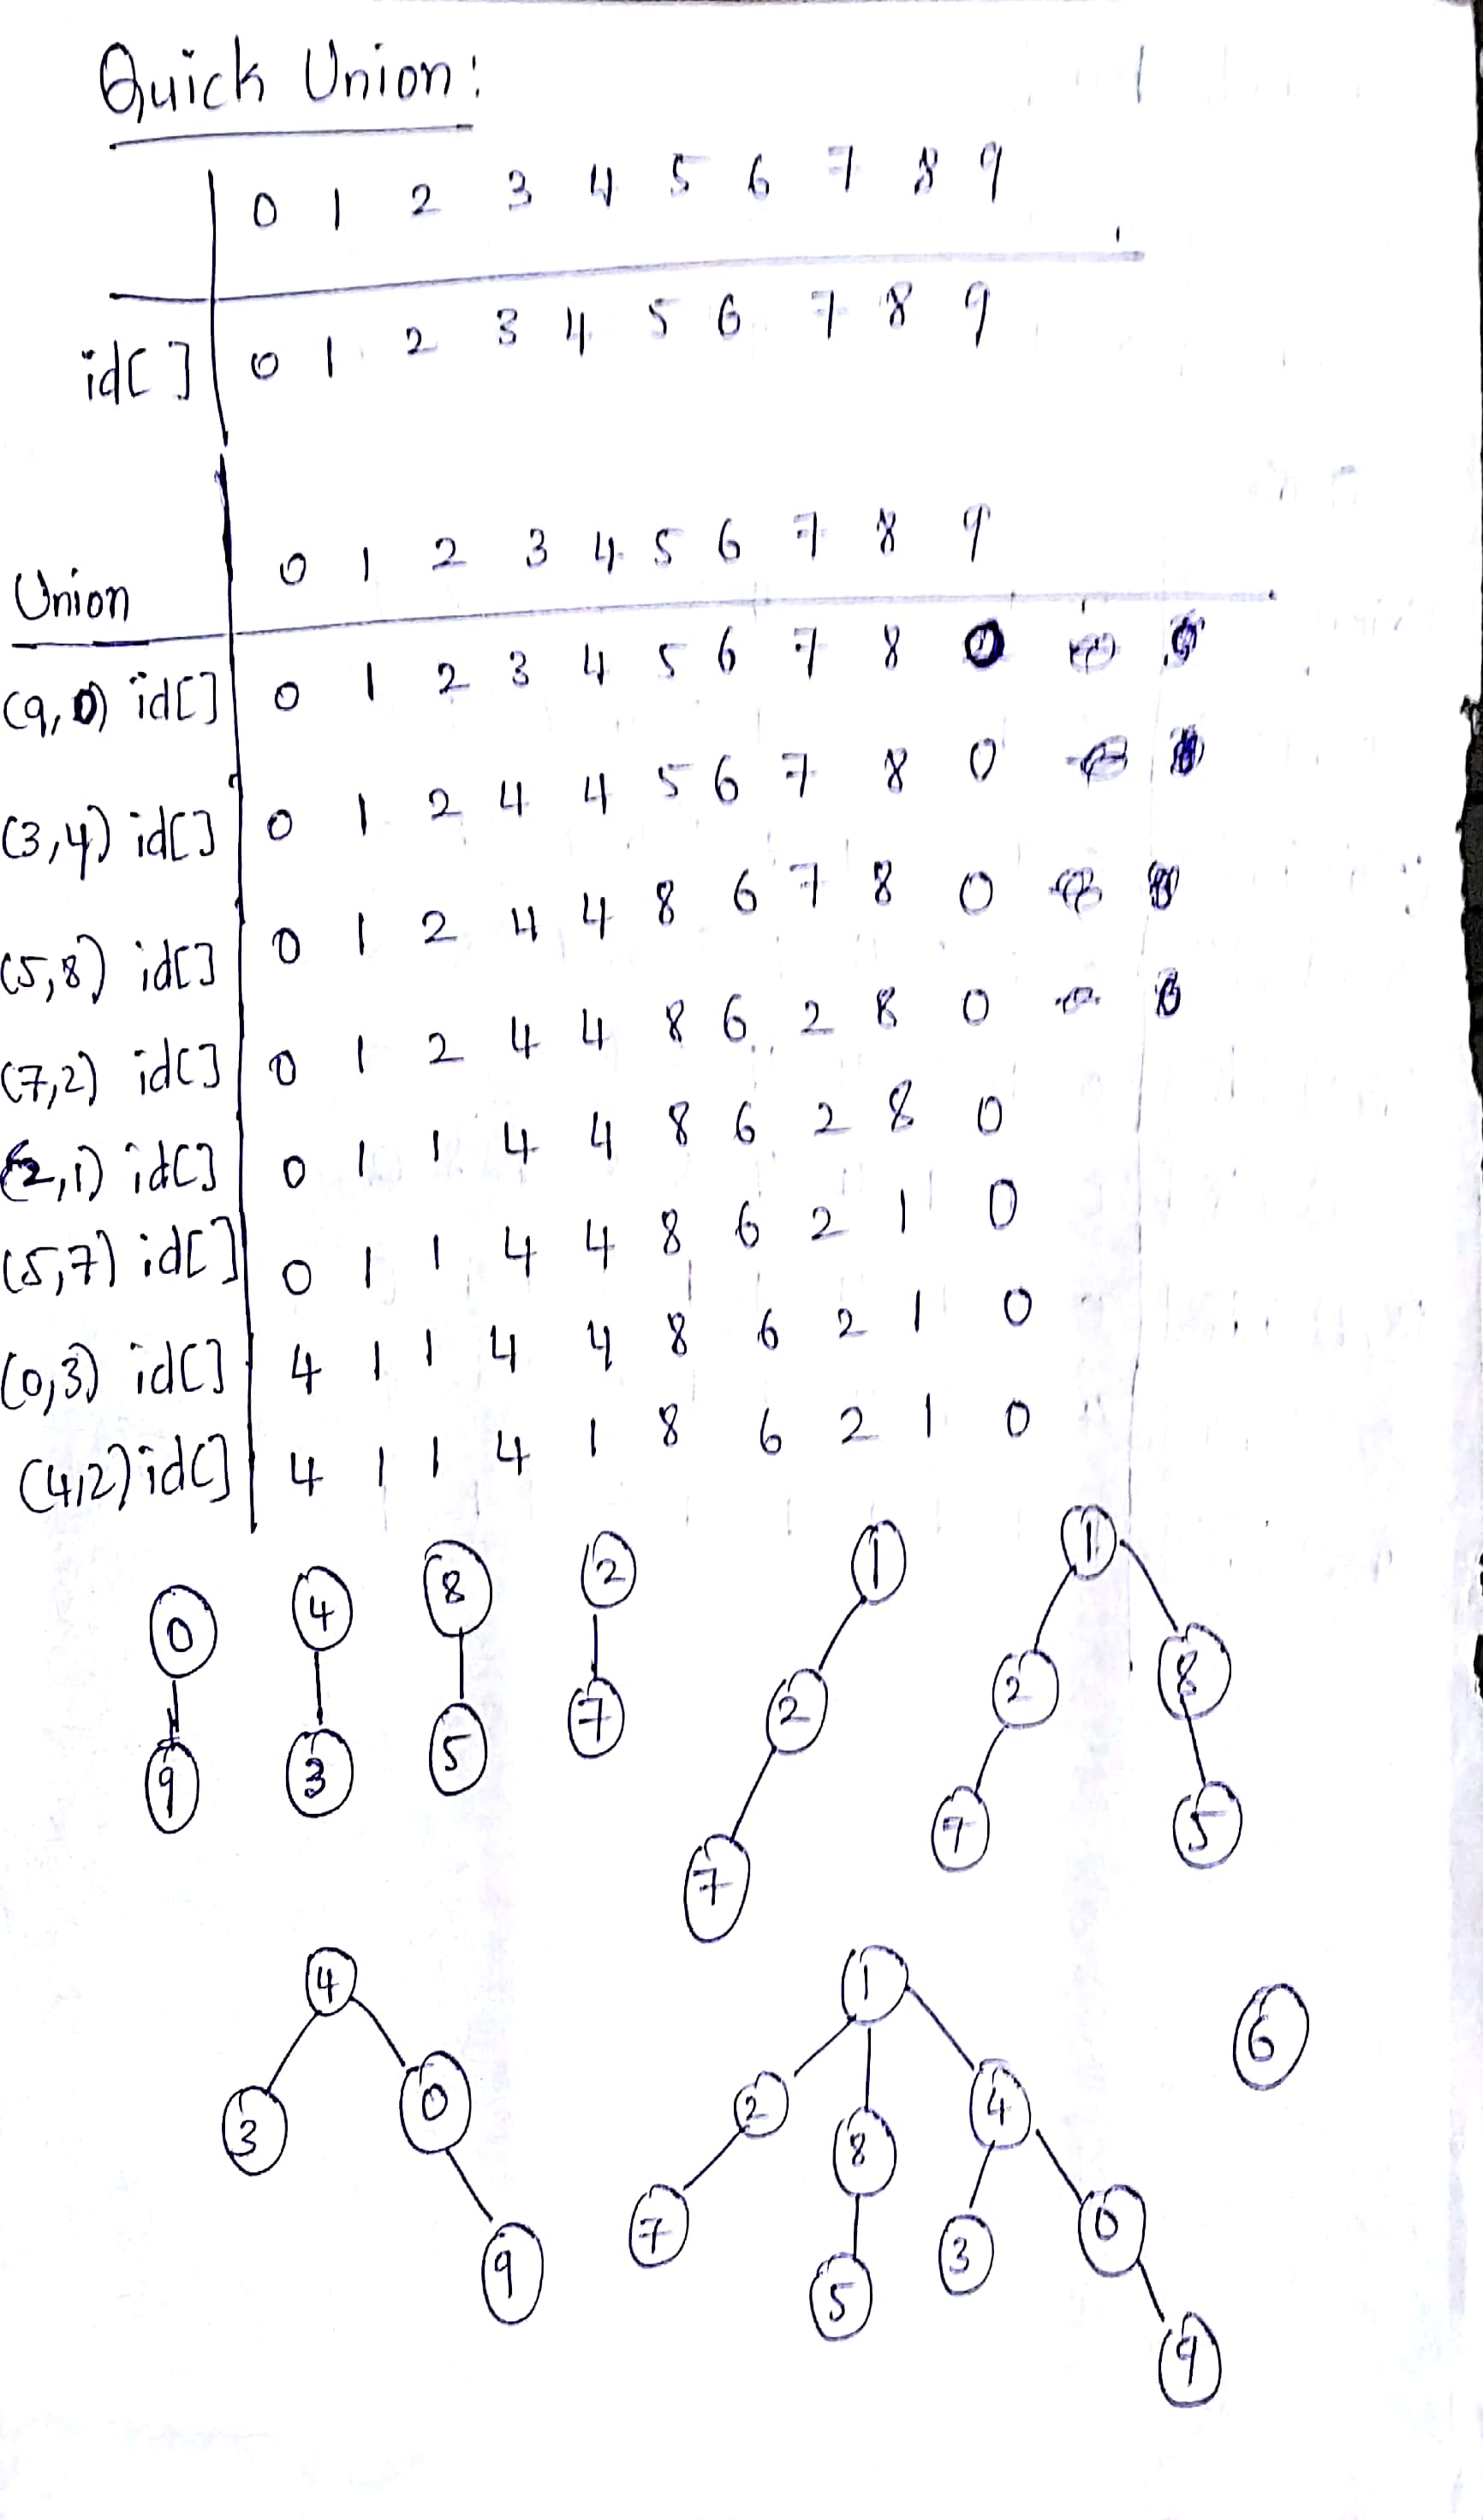 Quick Union:
0 1 2 3 4 5 6 7 8 9
id[] 0 1 2 3 4 5 6 7 8 9
Union 0 1 2 3 4 5 6 7 8 9
(9,0) id[] 0 1 2 3 4 5 6 7 8 0
(3,4) id[] 0 1 2 4 4 5 6 7 8 0
(5,8) id[] 0 1 2 4 4 8 6 7 8 0
(7,2) id[] 0 1 2 4 4 8 6 2 8 0
(2,1) id[] 0 1 1 4 4 8 6 2 8 0
(5,7) id[] 0 1 1 4 4 8 6 2 1 0
(0,3) id[] 4 1 1 4 4 8 6 2 1 0
(4,2) id[] 4 1 1 4 1 8 6 2 1 0
0 4 8 2 1 1
9 3 5 7 2 2 8
7 7 5
4 1 6
3 0 2 8 4
9 7 5 3 0
9